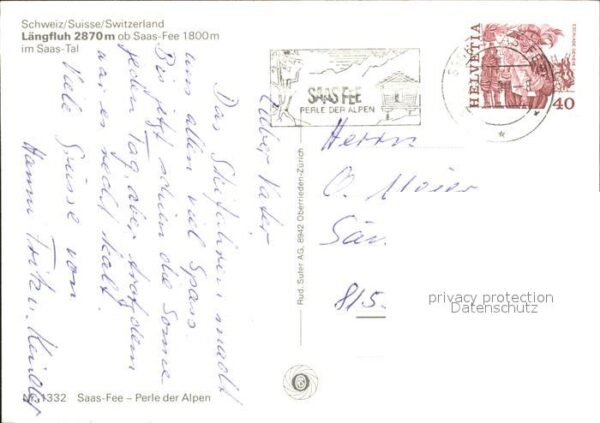 Schweiz/Suisse/Switzerland
Längfluh 2870 m ob Saas-Fee 1800 m
im Saas-Tal
SAAS FEE
PERLE DER ALPEN
HELVETIA
40
Lieber Vater
Das Skifahren macht
uns allen viel Spass.
Bis jetzt schien die Sonne
jeden Tag, aber trotzdem
war es recht kalt.
Viele Grüsse von
Hanni, Fritz u. Kinder
Herrn
O. Meier
815.
privacy protection
Datenschutz
Rud. Suter AG, 8942 Oberrieden-Zürich
1332 Saas-Fee – Perle der Alpen